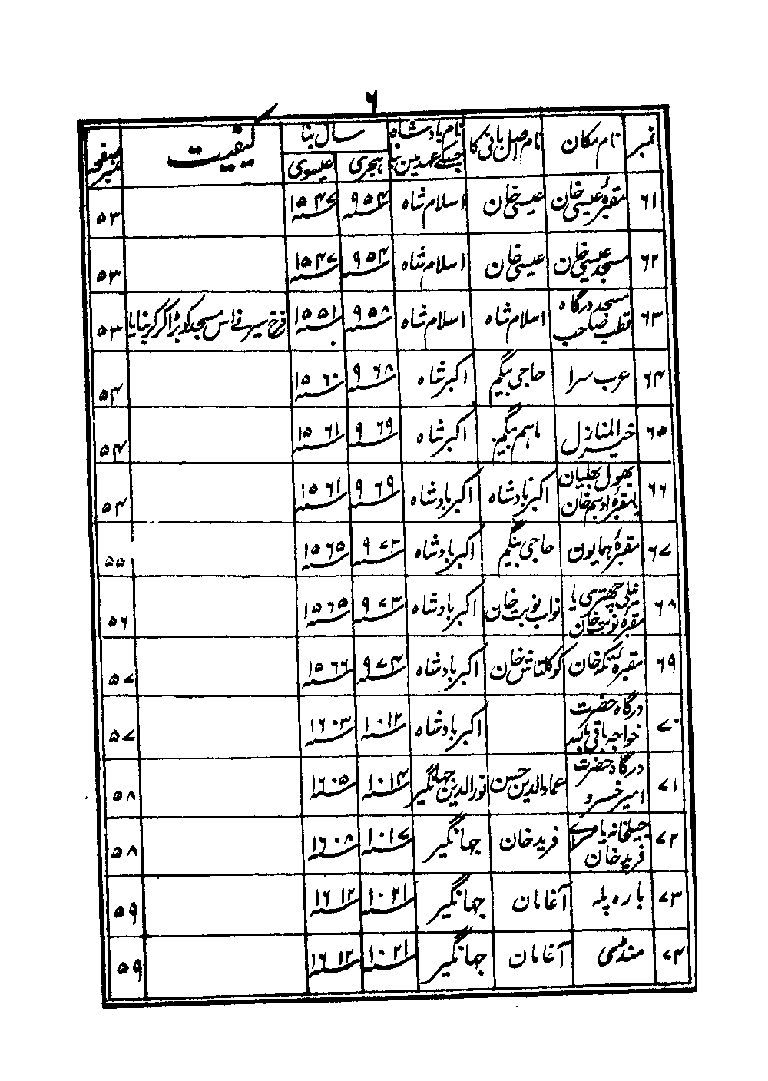 ۶
نمبر | نام مکان | نام اصل بانی کا | نام بادشاہ جسکے عہد میں بنا | سال بنا ہجری | سال بنا عیسوی | کیفیت | نمبر صفحہ
۶۱ | مقبرۂ عیسیٰ خان | عیسیٰ خان | اسلام شاہ | ۹۵۴ | ۱۵۴۷ | | ۵۳
۶۲ | مسجد عیسیٰ خان | عیسیٰ خان | اسلام شاہ | ۹۵۴ | ۱۵۴۷ | | ۵۳
۶۳ | مسجد درگاہ قطب صاحب | اسلام شاہ | اسلام شاہ | ۹۵۸ | ۱۵۵۱ | فرخ سیر نے اس مسجد کو بڑا کر کر بنایا | ۵۳
۶۴ | عرب سرا | حاجی بیگم | اکبر شاہ | ۹۶۸ | ۱۵۶۰ | | ۵۴
۶۵ | خیر المنازل | ماہم بیگم | اکبر شاہ | ۹۶۹ | ۱۵۶۱ | | ۵۴
۶۶ | بھول بھلیان یا مقبرۂ ادہم خان | اکبر بادشاہ | اکبر بادشاہ | ۹۶۹ | ۱۵۶۱ | | ۵۴
۶۷ | مقبرۂ ہمایون | حاجی بیگم | اکبر بادشاہ | ۹۷۳ | ۱۵۶۵ | | ۵۵
۶۸ | نیلی چھتری یا مقبرہ نوبت خان | نواب نوبت خان | اکبر بادشاہ | ۹۷۳ | ۱۵۶۵ | | ۵۶
۶۹ | مقبرۂ تکہ خان | کوکلتاش خان | اکبر بادشاہ | ۹۷۴ | ۱۵۶۶ | | ۵۷
۷۰ | درگاہ حضرت خواجہ باقی باللہ | | اکبر بادشاہ | ۱۰۱۲ | ۱۶۰۳ | | ۵۷
۷۱ | درگاہ حضرت امیر خسرو | عماد الدین حسن | نور الدین جہانگیر | ۱۰۱۴ | ۱۶۰۵ | | ۵۸
۷۲ | جیلخانہ یا سراے فرید خان | فرید خان | جہانگیر | ۱۰۱۷ | ۱۶۰۸ | | ۵۸
۷۳ | بارہ پلہ | آغامان | جہانگیر | ۱۰۲۱ | ۱۶۱۲ | | ۵۹
۷۴ | منڈی | آغامان | جہانگیر | ۱۰۲۱ | ۱۶۱۲ | | ۵۹